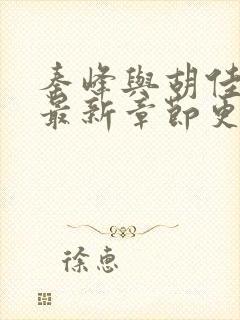 秦峰與胡佳
最新章節更
徐惠